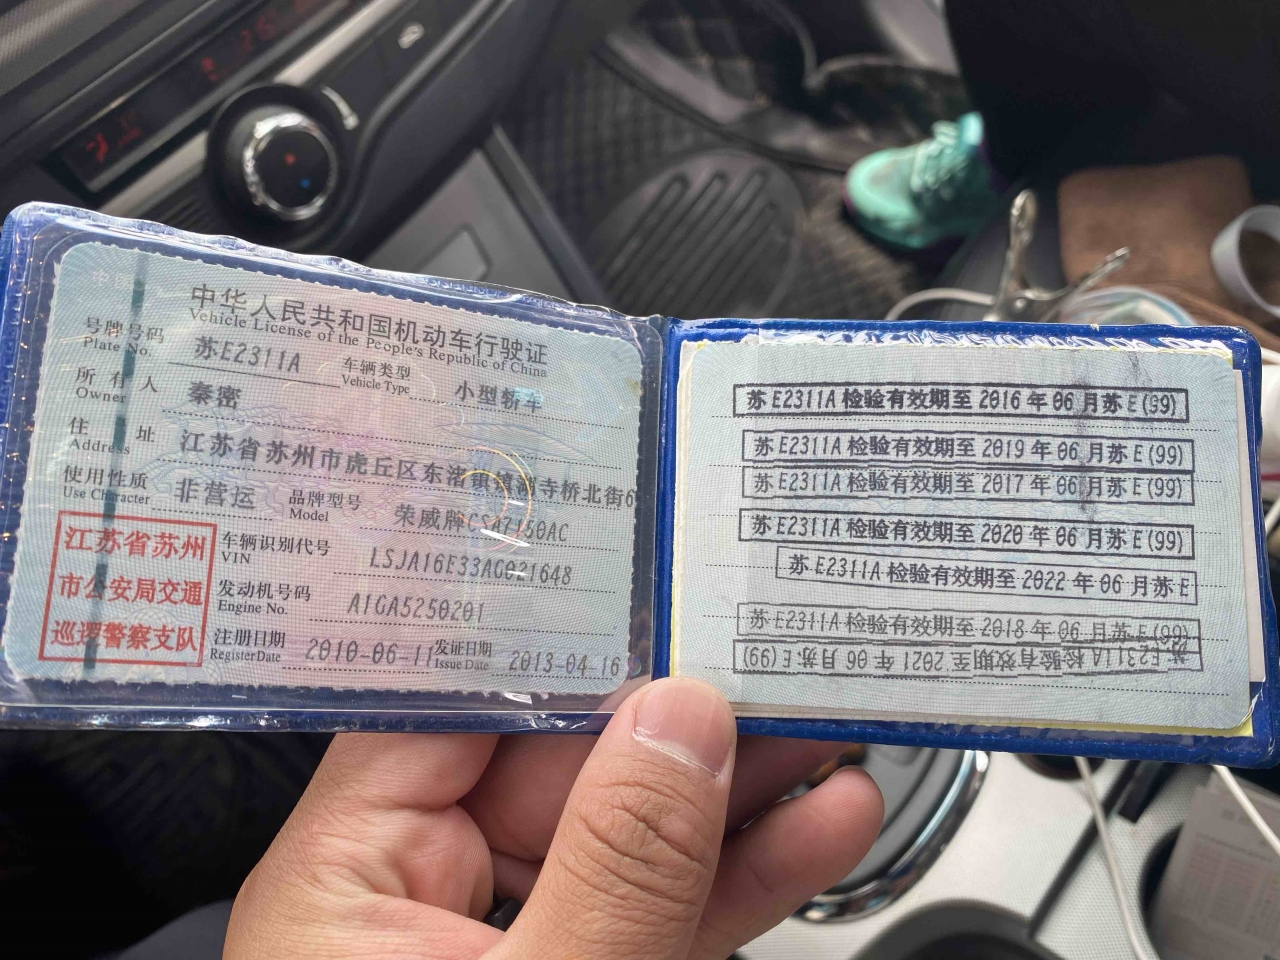 中华人民共和国机动车行驶证
Vehicle License of the People's Republic of China
号牌号码 苏E2311A 车辆类型 小型轿车
Plate No. Vehicle Type
所有人 秦密
Owner
住址 江苏省苏州市虎丘区东渚镇 寺桥北街6
Address
使用性质 非营运 品牌型号 荣威牌CSA7150AC
Use Character Model
江苏省苏州
市公安局交通
巡逻警察支队
车辆识别代号 LSJA16E33AG021648
VIN
发动机号码 A1GA5250201
Engine No.
注册日期 2010-06-11 发证日期 2013-04-16
Register Date Issue Date
苏E2311A检验有效期至2016年06月苏E(99)
苏E2311A检验有效期至2019年06月苏E(99)
苏E2311A检验有效期至2017年06月苏E(99)
苏E2311A检验有效期至2020年06月苏E(99)
苏E2311A检验有效期至2022年06月苏E
苏E2311A检验有效期至2018年06月苏E(99)
苏E2311A检验有效期至2021年06月苏E(99)